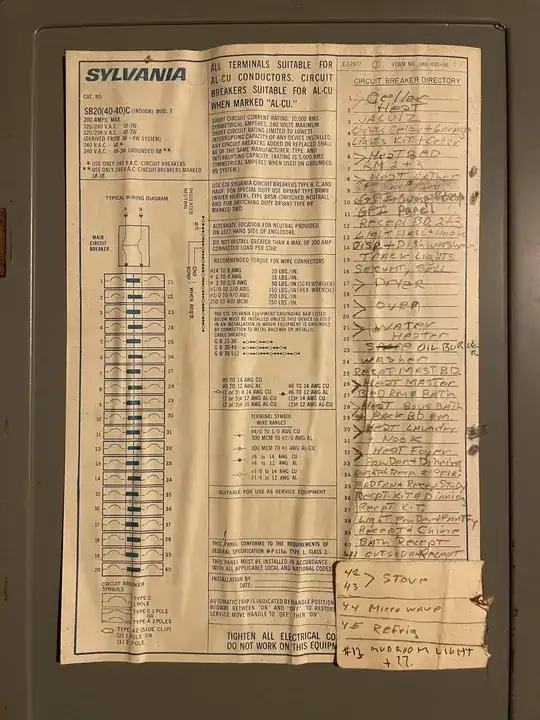 SYLVANIA
CAT. NO.
SB20(40-40)C (INDOOR) MOD. 1
200 AMPS. MAX.
120/240 V.A.C. - 1Ø-3W
120/208 V.A.C. - 1Ø-3W
(DERIVED FROM 3Ø - 4W SYSTEM)
240 V.A.C. - 3Ø*
240 V.A.C. - 3Ø-3W GROUNDED BØ**
* USE ONLY 240 V.A.C. CIRCUIT BREAKERS
** USE ONLY 240 V.A.C. CIRCUIT BREAKERS MARKED
1Ø-3Ø.
TYPICAL WIRING DIAGRAM
INSULATED
NEUTRAL
MAIN
CIRCUIT
BREAKER
GND
BOND
WHEN REQ'D
1 21
2 22
3 23
4 24
5 25
6 26
7 27
8 28
9 29
10 30
11 31
12 32
13 33
14 34
15 35
16 36
17 37
18 38
19 39
20 40
CIRCUIT BREAKER
SYMBOLS
TYPE C
1 POLE
TYPE C 1 POLE
OR
TYPE A 2 POLES
TYPE A2 (SIDE CLIP)
(2) 1 POLE OR
(1) 2 POLE
ALL TERMINALS SUITABLE FOR
AL-CU CONDUCTORS. CIRCUIT
BREAKERS SUITABLE FOR AL-CU
WHEN MARKED "AL-CU."
SHORT CIRCUIT CURRENT RATING: 10,000 RMS
SYMMETRICAL AMPERES, 240 VOLTS MAXIMUM
SHORT CIRCUIT RATING LIMITED TO LOWEST
INTERRUPTING CAPACITY OF ANY DEVICE INSTALLED.
ANY CIRCUIT BREAKERS ADDED OR REPLACED SHALL
BE OF THE SAME MANUFACTURER, TYPE, AND
INTERRUPTING CAPACITY. (RATING IS 5,000 RMS
SYMMETRICAL AMPERES WHEN USED ON GROUNDED
BØ SYSTEM.)
USE GTE SYLVANIA CIRCUIT BREAKERS TYPE A, C, AND
HALF. FOR SPECIAL DUTY USE BRYANT TYPE BRWH
(WATER HEATER), TYPE BRSN (SWITCHED NEUTRAL),
AND FOR SWITCHING DUTY BRYANT TYPE BR
MARKED SWD.
ALTERNATE LOCATION FOR NEUTRAL PROVIDED
ON LEFT HAND SIDE OF ENCLOSURE.
DO NOT INSTALL GREATER THAN A MAX. OF 200 AMP
CONNECTED LOAD PER STAB.
RECOMMENDED TORQUE FOR WIRE CONNECTORS.
#14 TO 8 AWG 20 LBS./IN.
# 6 TO 4 AWG 35 LBS./IN.
# 3 TO 2/0 AWG 50 LBS./IN(SCREWDRIVER)
#1/0 TO 2/0 AWG 150 LBS./IN(HEX. WRENCH)
#3/0 TO 4/0 AWG 200 LBS./IN.
250 TO 400 MCM 250 LBS./IN.
THE GTE SYLVANIA EQUIPMENT GROUNDING BAR LISTED
BELOW MUST BE INSTALLED UNLESS THIS DEVICE IS USED
IN AN INSTALLATION IN WHICH EQUIPMENT IS GROUNDED
BY CONNECTION TO METAL RACEWAY OR METALLIC
CABLE SHEATHS:
TERMINAL SYMBOL
WIRE RANGES
SUITABLE FOR USE AS SERVICE EQUIPMENT
THIS PANEL CONFORMS TO THE REQUIREMENTS OF
FEDERAL SPECIFICATION W-P-115a, TYPE 1, CLASS 2.
THIS PANEL MUST BE INSTALLED IN ACCORDANCE
WITH ALL APPLICABLE LOCAL AND NATIONAL CODES
INSTALLATION BY:
DATE:
AUTOMATIC TRIP IS INDICATED BY HANDLE POSITION
MIDWAY BETWEEN "ON" AND "OFF". TO RESTORE
SERVICE MOVE HANDLE TO "OFF" THEN "ON".
TIGHTEN ALL ELECTRICAL CO
DO NOT WORK ON THIS EQUIPM
CIRCUIT BREAKER DIRECTORY
Cellar
Heat
JACUIZ
Lights Cellar + Garage
Lights Kit + Cellar
Heat BED
Heat Father
GFI Panel
Recept BR 2+3
Light Hall + Nook
Disp + Dishwasher
Track Lights
Security Bell
Dryer
Oven
Water
Heater
OIL BURNER
Washer
Recept Mast BR
Heat Master
Bed Rm + Bath
Heat Boys Bath
+ Back BD RM.
Heat Laundry
+ Nook
Heat Foyer
Powder + Dining
Bad Fan + Recep Study
Recept Kit + Dinning
Recept Kit
Light Powder + Pantry
Recept + Chime
Bath Recept
41 Outside Recept
42
43 > Stove
44 Microwave
45 Refrig
#13 MUDROOM LIGHT
+ ??